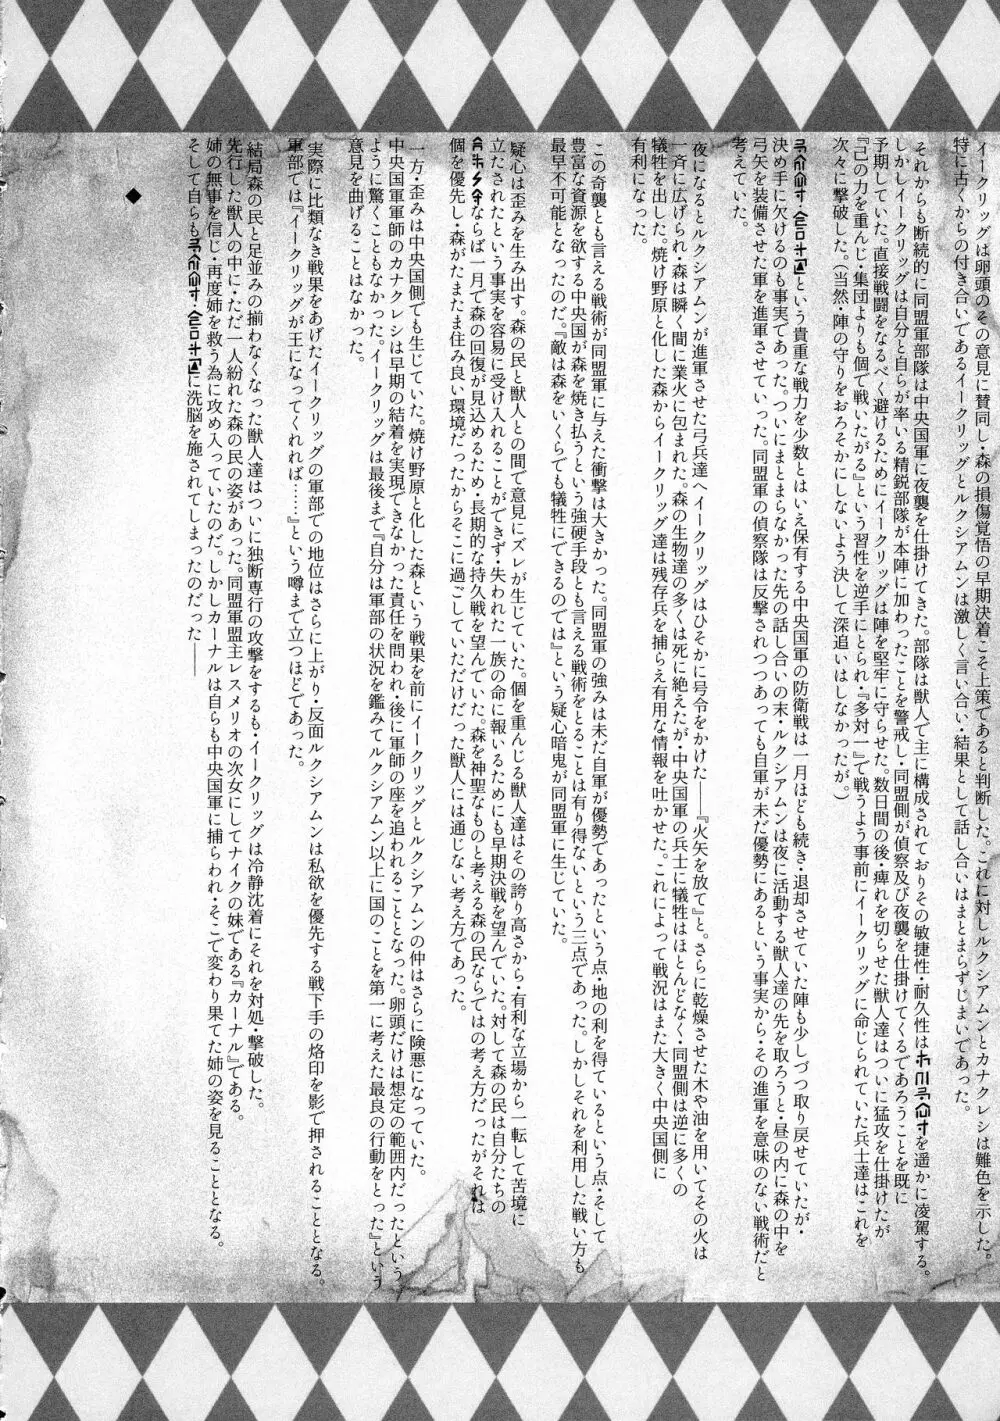 イークリッグは卵頭のその意見に賛同し・森の損傷覚悟の早期決着こそ上策であると判断した。これに対しルクシアムンとカナクレシは難色を示した。
特に古くからの付き合いであるイークリッグとルクシアムンは激しく言い合い・結果として話し合いはまとまらずじまいであった。
それからも断続的に同盟軍部隊は中央国軍に夜襲を仕掛けてきた。部隊は獣人で主に構成されておりその敏捷性・耐久性は を遥かに凌駕する。
しかしイークリッグは自分と自らが率いる精鋭部隊が本陣に加わったことを警戒し・同盟側が偵察及び夜襲を仕掛けてくるであろうことを既に
予期していた。直接戦闘をなるべく避けるためにイークリッグは陣を堅牢に守らせた。数日間の後・痺れを切らせた獣人達はついに猛攻を仕掛けたが
『己の力を重んじ・集団よりも個で戦いたがる』という習性を逆手にとられ・『多対一』で戦うよう事前にイークリッグに命じられていた兵士達はこれを
次々に撃破した。（当然・陣の守りをおろそかにしないよう決して深追いはしなかったが。）
という貴重な戦力を少数とはいえ保有する中央国軍の防衛戦は一月ほども続き・退却させていた陣も少しづつ取り戻せていたが・
決め手に欠けるのも事実であった。ついにまとまらなかった先の話し合いの末・ルクシアムンは夜に活動する獣人達の先を取ろうと・昼の内に森の中を
弓矢を装備させた軍を進軍させていった。同盟軍の偵察隊は反撃されつつあっても自軍が未だ優勢にあるという事実から・その進軍を意味のない戦術だと
考えていた。
夜になるとルクシアムンが進軍させた弓兵達へイークリッグはひそかに号令をかけた――『火矢を放て』と。さらに乾燥させた木や油を用いてその火は
一斉に広げられ・森は瞬く間に業火に包まれた。森の生物達の多くは死に絶えたが・中央国軍の兵士に犠牲はほとんどなく・同盟側は逆に多くの
犠牲を出した。焼け野原と化した森からイークリッグ達は残存兵を捕らえ有用な情報を吐かせた。これによって戦況はまた大きく中央国側に
有利になった。
この奇襲とも言える戦術が同盟軍に与えた衝撃は大きかった。同盟軍の強みは未だ自軍が優勢であったという点・地の利を得ているという点・そして
豊富な資源を欲する中央国が森を焼き払うという強硬手段とも言える戦術をとることは有り得ないという三点であった。しかしそれを利用した戦い方も
最早不可能となったのだ。『敵は森をいくらでも犠牲にできるのでは』という疑心暗鬼が同盟軍に生じていた。
疑心は歪みを生み出す。森の民と獣人との間で意見にズレが生じていた。個を重んじる獣人達はその誇り高さから・有利な立場から一転して苦境に
立たされたという事実を容易に受け入れることができず・失われた一族の命に報いるためにも早期決戦を望んでいた。対して森の民は自分たちの
ならば一月で森の回復が見込めるため・長期的な持久戦を望んでいた。森を神聖なものと考える森の民ならではの考え方だったがそれは
個を優先し・森がたまたま住み良い環境だったからそこに過ごしていただけだった獣人には通じない考え方であった。
一方・歪みは中央国側でも生じていた。焼け野原と化した森という戦果を前にイークリッグとルクシアムンの仲はさらに険悪になっていた。
中央国軍軍師のカナクレシは早期の結着を実現できなかった責任を問われ・後に軍師の座を追われることとなった。卵頭だけは想定の範囲内だったという
ように驚くこともなかった。イークリッグは最後まで『自分は軍部の状況を鑑みてルクシアムン以上に国のことを第一に考えた最良の行動をとった』という
意見を曲げることはなかった。
実際に比類なき戦果をあげたイークリッグの軍部での地位はさらに上がり・反面ルクシアムンは私欲を優先する戦下手の烙印を影で押されることとなる。
軍部では『イークリッグが王になってくれれば……』という噂まで立つほどであった。
結局森の民と足並みの揃わなくなった獣人達はついに独断専行の攻撃をするも・イークリッグは冷静沈着にそれを対処・撃破した。
先行した獣人の中に・ただ一人紛れた森の民の姿があった。同盟軍盟主レスメリオの次女にしてナイクの妹である『カーナル』である。
姉の無事を信じ・再度姉を救う為に攻め入っていたのだ。しかしカーナルは自らも中央国軍に捕らわれ・そこで変わり果てた姉の姿を見ることとなる。
そして自らも に洗脳を施されてしまったのだった――
◆